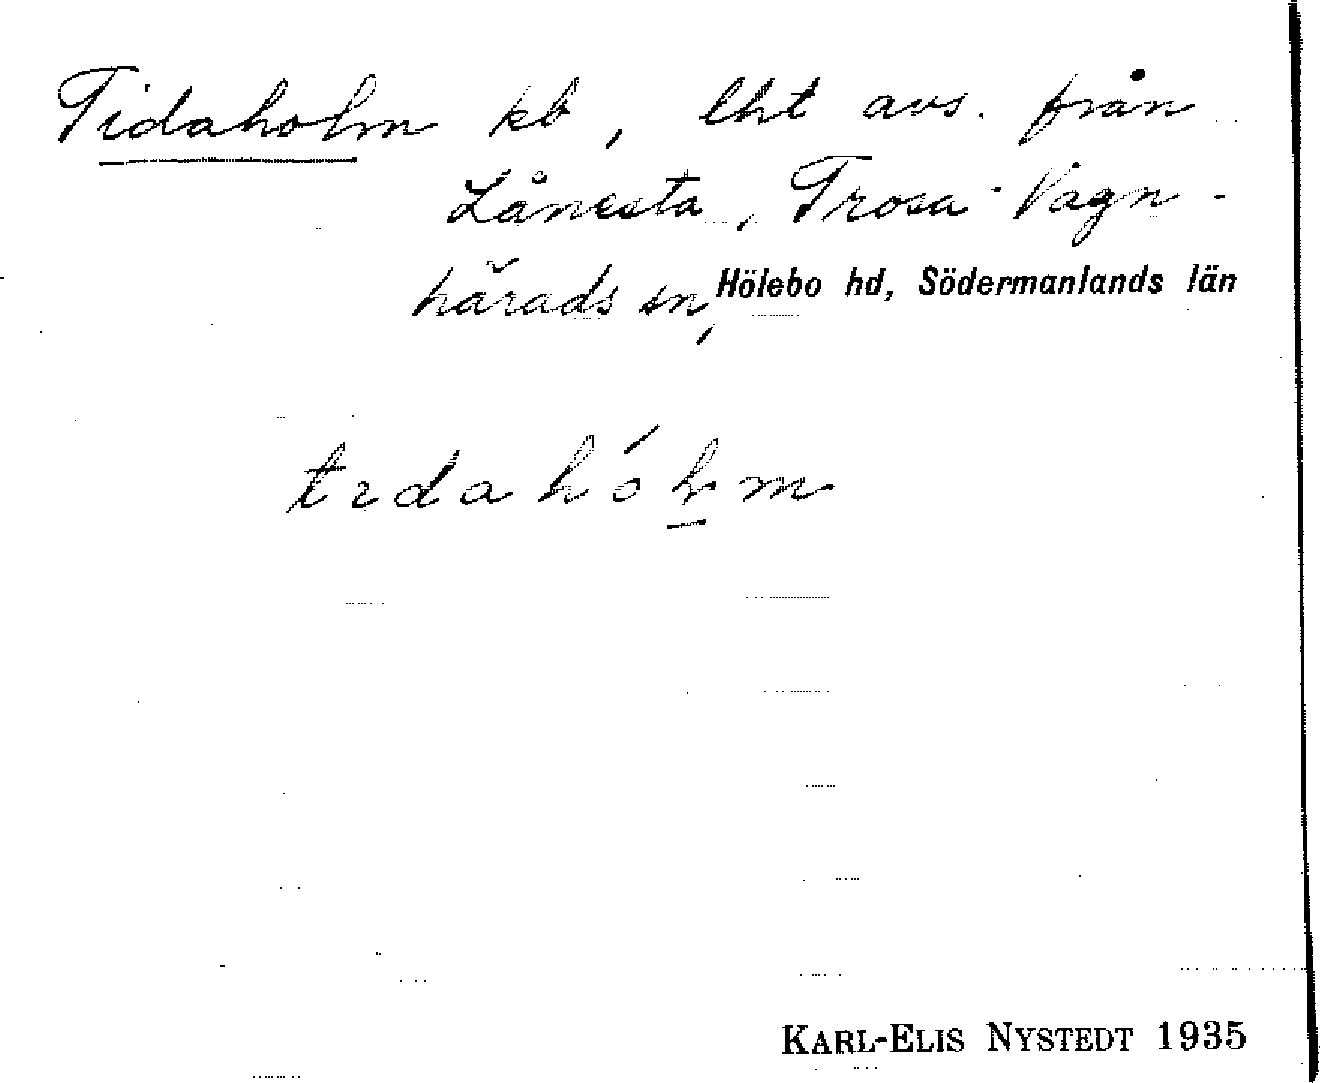 Tidaholm kb, lht avs. från
Lånesta, Trosa-Vagn-
härads sn, Hölebo hd, Södermanlands län
tɪdahólm
KARL-ELIS NYSTEDT 1935